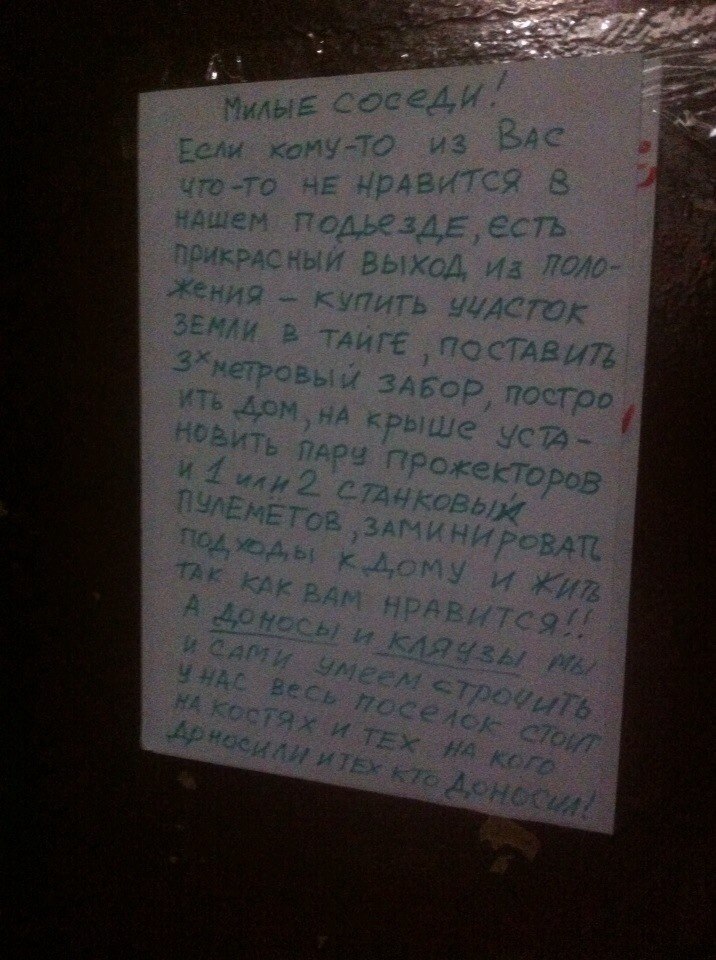 Милые соседи!
Если кому-то из Вас
что-то не нравится в
нашем подьезде, есть
прикрасный выход из поло-
жения – купить участок
земли в тайге, поставить
3х метровый забор, постро
ить дом, на крыше уста-
новить пару прожекторов
и 1 или 2 станковых
пулеметов, заминировать
подходы к дому и жить
так как вам нравится!!
А доносы и кляузы мы
и сами умеем строчить
у нас весь поселок стоит
на костях и тех на кого
доносили и тех кто доносил!